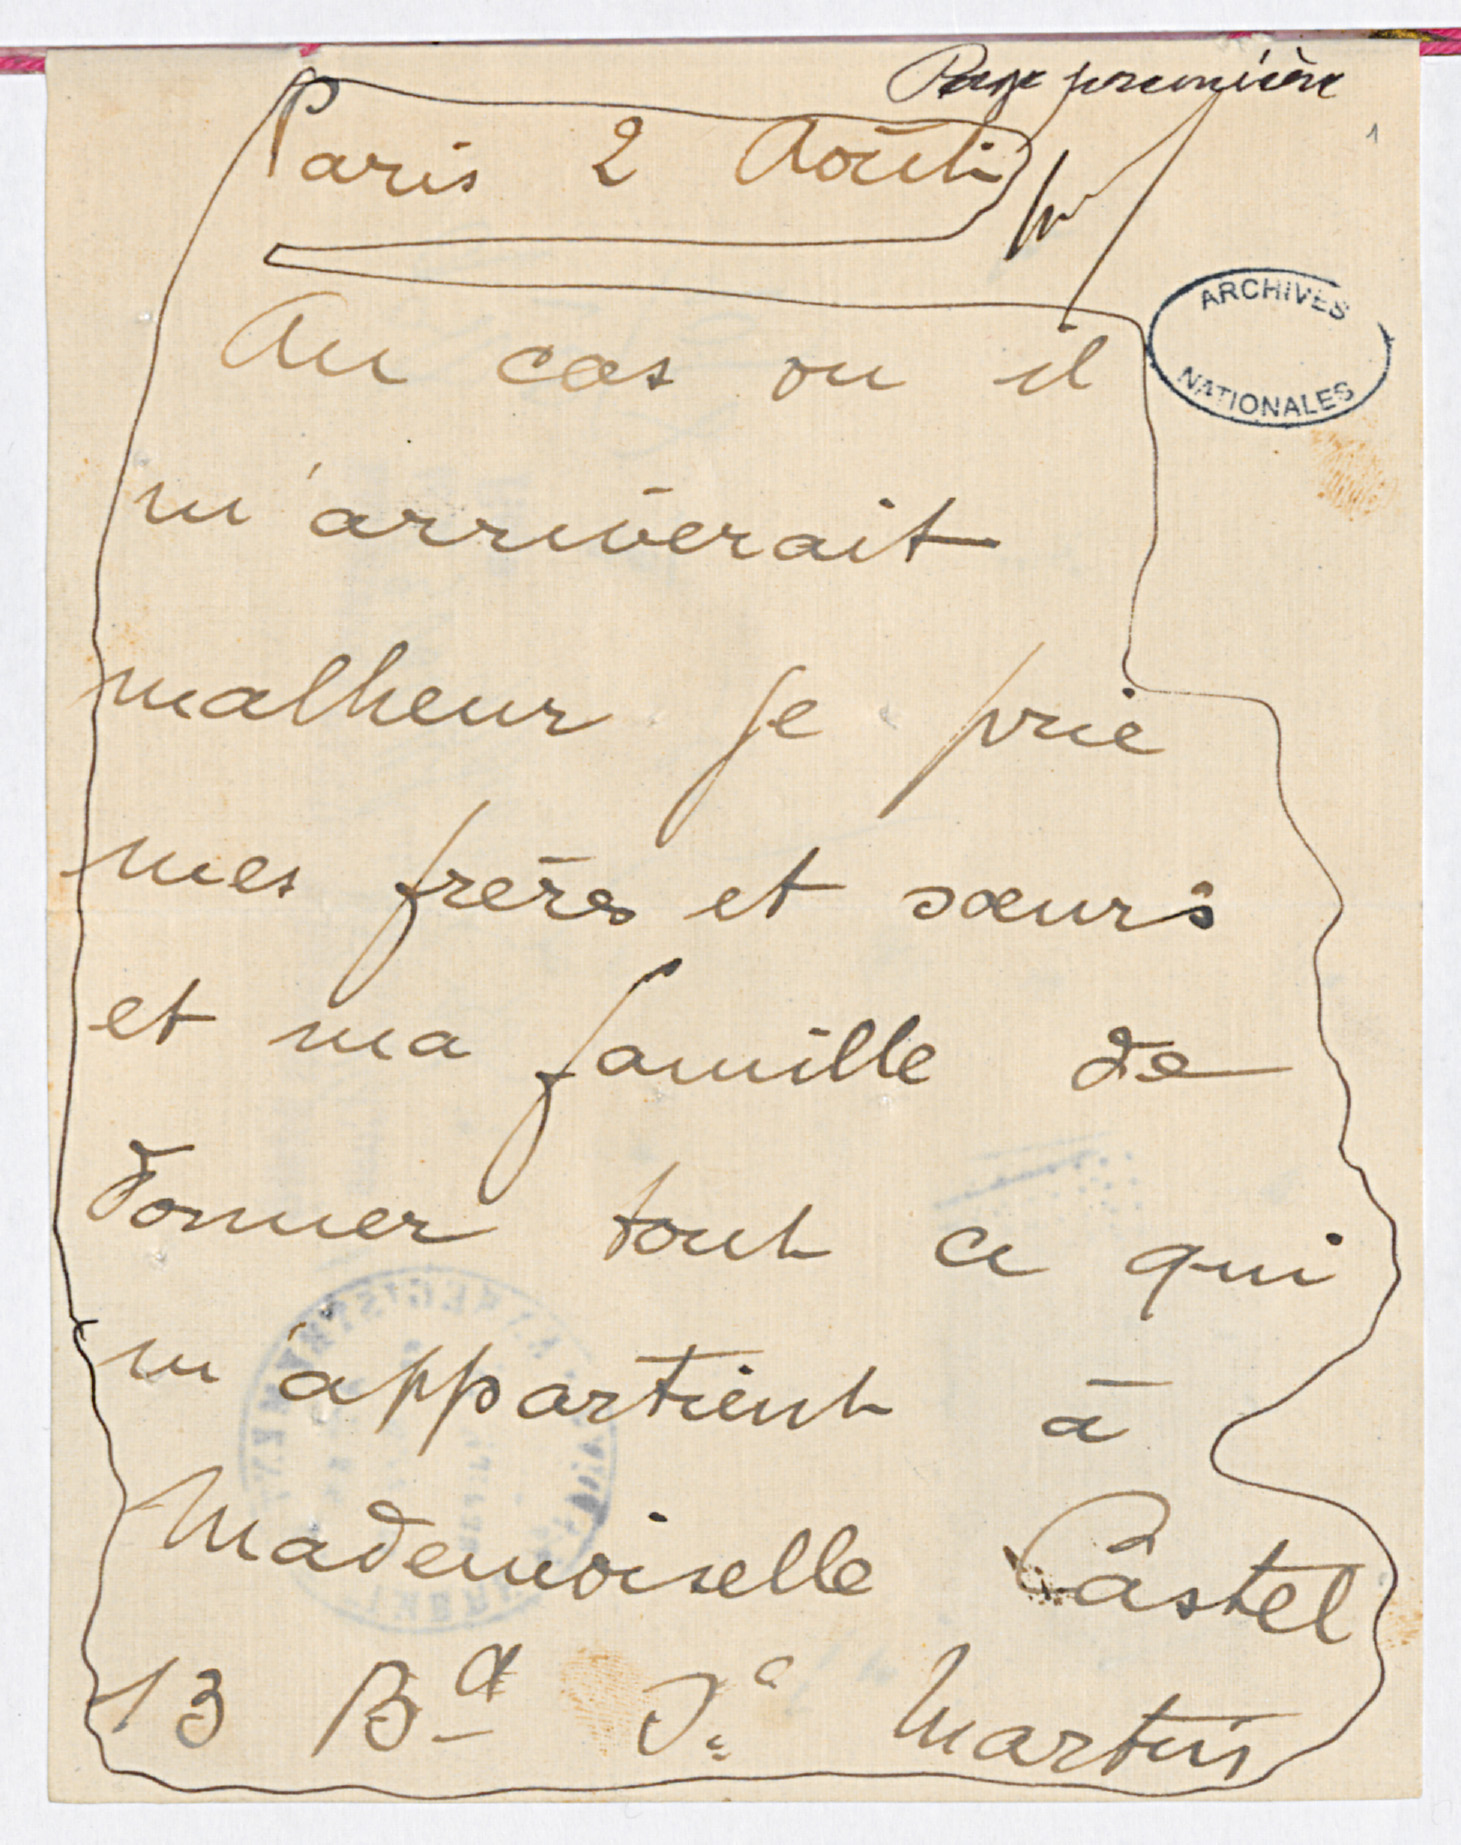 Page première
1
Paris 2 Août
ARCHIVES
NATIONALES
Au cas ou il
m'arriverait
malheur je prie
mes frères et sœurs
et ma famille de
donner tout ce qui
m'appartient à
Mademoiselle Castel
13 Bd St Martin